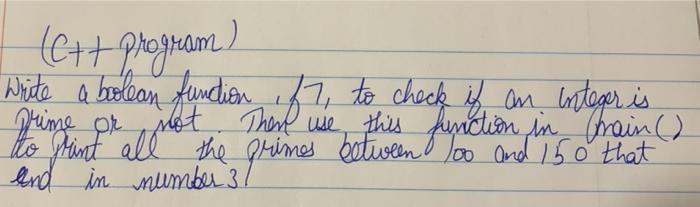 (C++ program)
Write a boolean function, f7, to check if an integer is
prime or not Then use this function in main()
to print all the primes between 100 and 150 that
end in number 3!